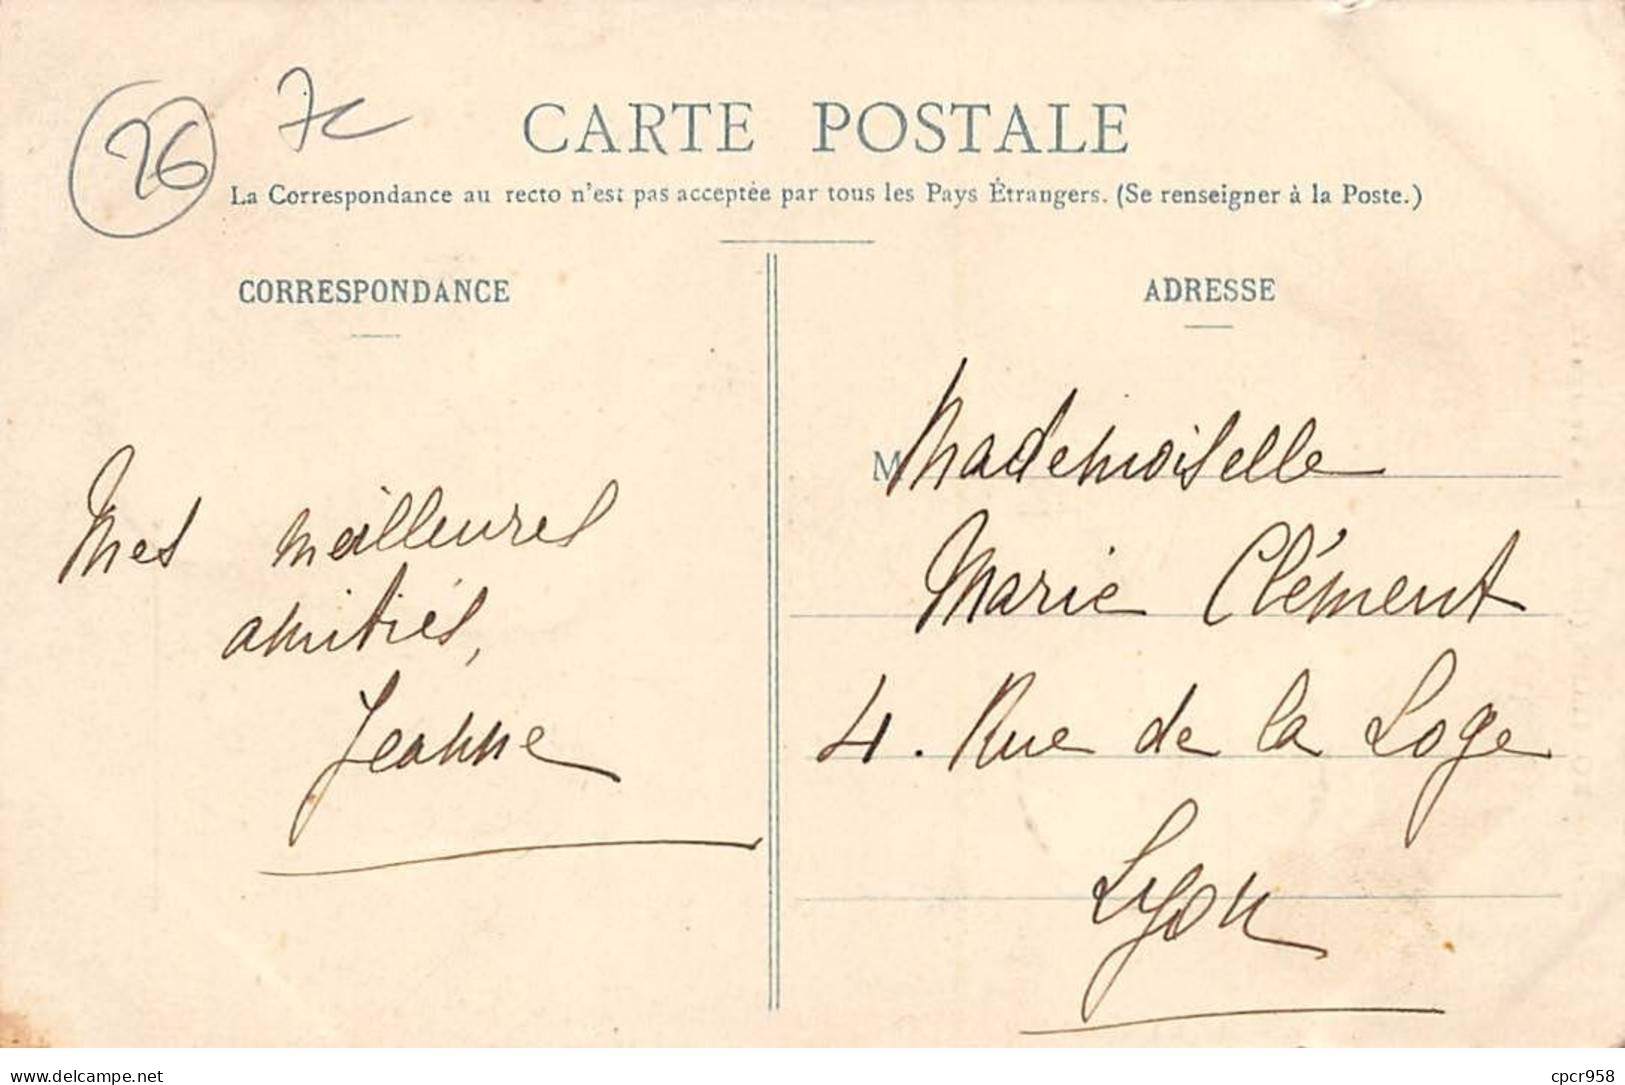 26
7c
CARTE POSTALE
La Correspondance au recto n'est pas acceptée par tous les Pays Étrangers. (Se renseigner à la Poste.)
CORRESPONDANCE
Mes meilleures
amitiés,
Jeanne
ADRESSE
M Mademoiselle
Marie Clément
4. Rue de la Loge
Lyon
www.delcampe.net
cpcr958